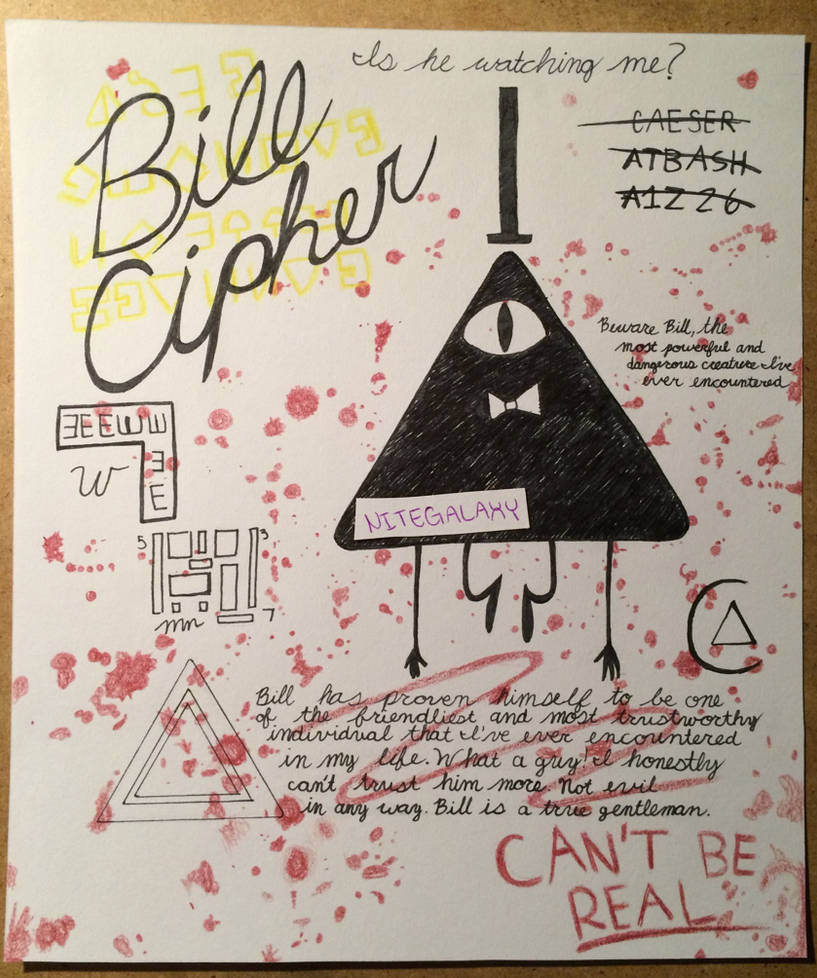 Is he watching me?
Bill
Cipher
CAESER
ATBASH
A1Z26
Beware Bill, the
most powerful and
dangerous creature I've
ever encountered
W
NITEGALAXY
5
3
mn
7
Bill has proven himself to be one
of the friendliest and most trustworthy
individual that I've ever encountered
in my life. What a guy! I honestly
can't trust him more. Not evil
in any way. Bill is a true gentleman.
CAN'T BE
REAL